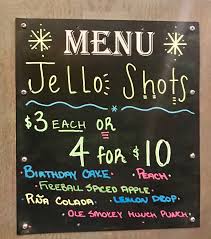 MENU
Jello Shots
$3 EACH OR
4 FOR $10
BIRTHDAY CAKE • PEACH •
• FIREBALL SPICED APPLE •
PIÑA COLADA • LEMON DROP •
• OLE SMOKEY HUNCH PUNCH •